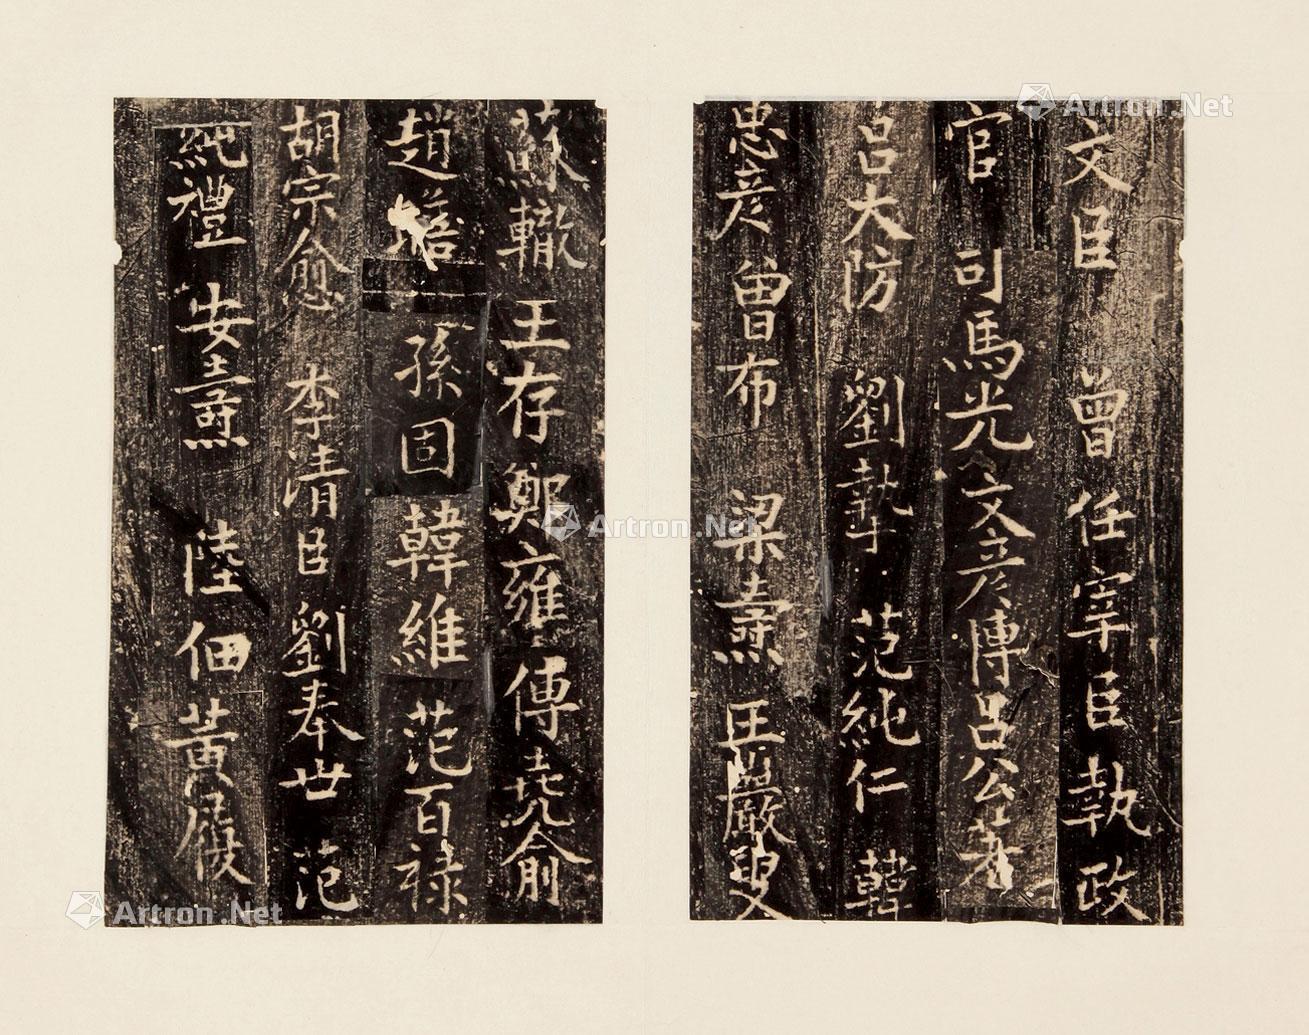 文臣 曾任宰臣執政
官 司馬光 文彥博 呂公著
呂大防 劉摯 范純仁 韓
忠彥 曾布 梁燾 王巖叟
蘇轍 王存 鄭雍 傅堯俞
趙瞻 孫固 韓維 范百祿
胡宗愈 李清臣 劉奉世 范
純禮 安燾 陸佃 黃履
Artron.Net
Artron.Net
Artron.Net